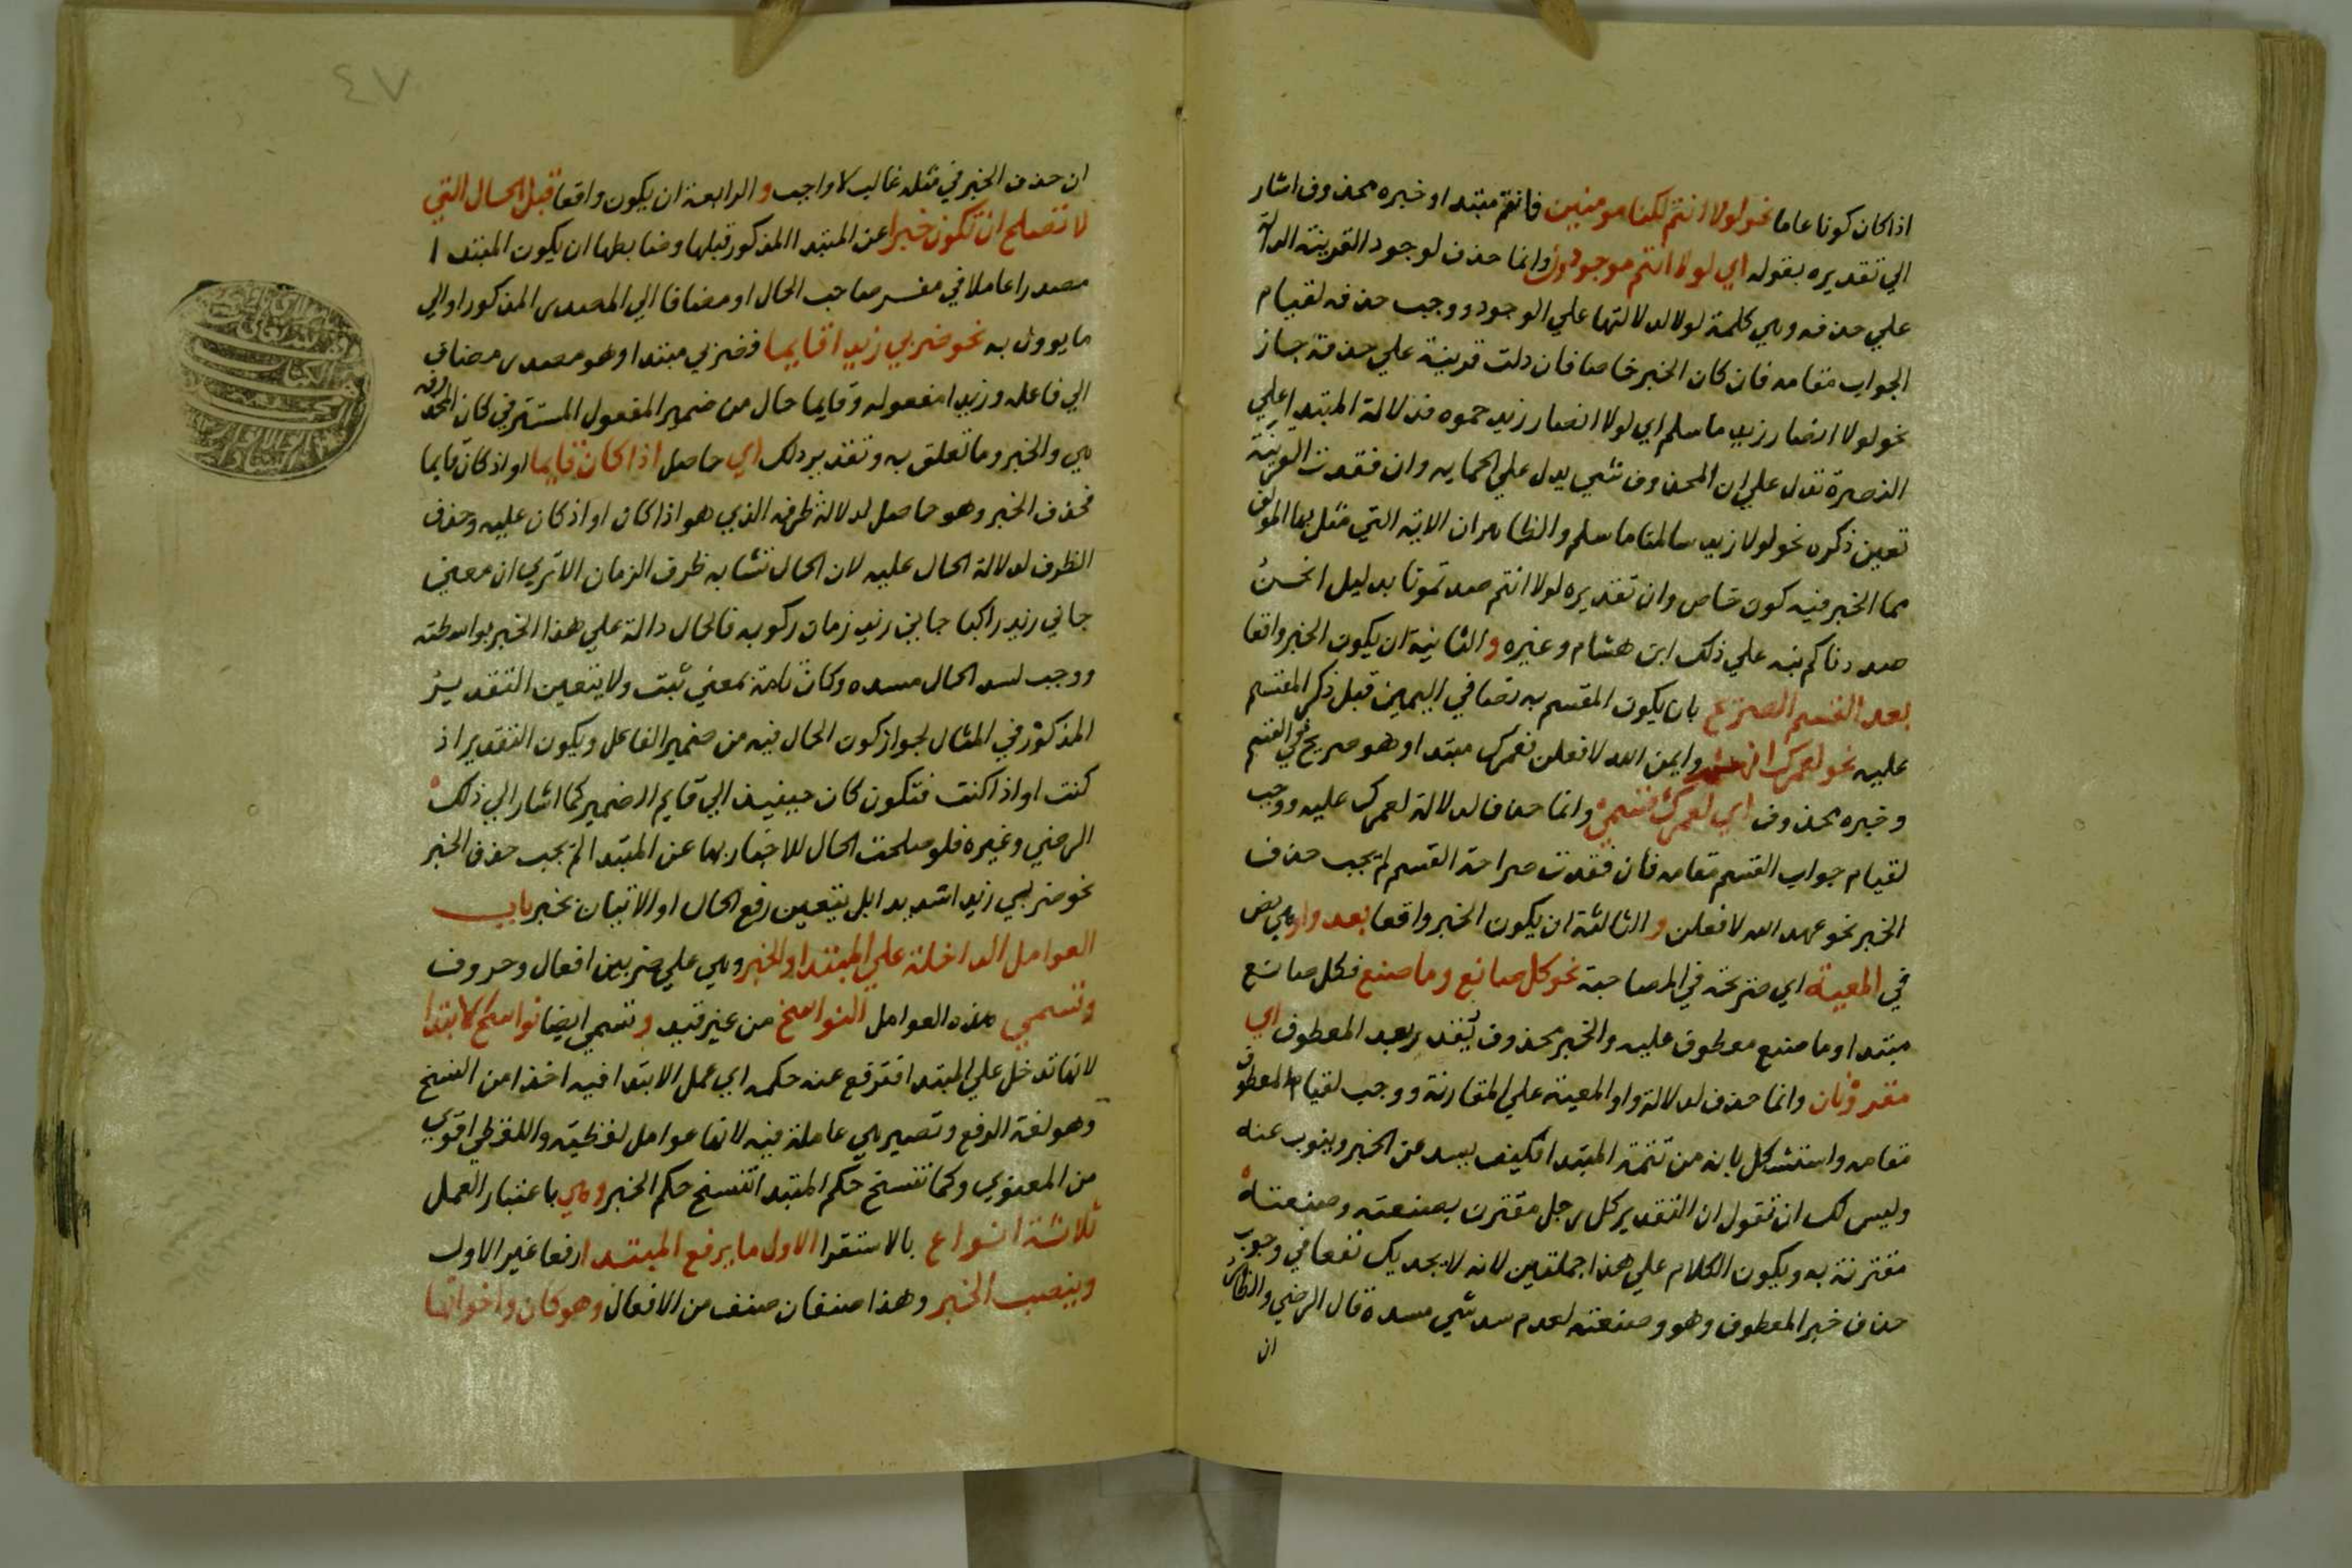 اذا كان كونا عاما نحو لولا انتم لكنا مومنين فانتم مبتدا وخبره محذوف اشار
الي تقديره بقوله اي لولا انتم موجودون وانما حذف لوجود القرينة الدالة
علي حذفه وهي كلمة لولا لدلالتها علي الوجود ووجب حذفه لقيام
الجواب مقامه فان كان الخبر خاصا فان دلت قرينة علي حذفه جاز
نحو لولا انصار زيد ما سلم اي لولا انصار زيد حموه فدلالة المبتدا علي
النصرة تدل علي ان المحذوف شي يدل علي الحمايه وان فقدت القرينة
تعين ذكره نحو لولا زيد سالمنا ما سلم والظاهر ان الاية التي مثل بها المولف
مما الخبر فيه كون خاص وان تقديره لولا انتم صددتمونا بدليل انحن
صددناكم نبه علي ذلك ابن هشام وغيره والثانية ان يكون الخبر واقعا
بعد القسم الصريح بان يكون المقسم به نصا في اليمين قبل ذكر المقسم
عليه نحو لعمرك وايمن الله لافعلن فعمرك مبتدا وهو صريح في القسم
وخبره محذوف اي لعمرك قسمي وانما حذف لدلالة لعمرك عليه ووجب
لقيام جواب القسم مقامه فان فقدت صراحة القسم لم يجب حذف
الخبر نحو عهد الله لافعلن والثالثة ان يكون الخبر واقعا بعد واو هي نص
في المعية اي صريحة في المصاحبة نحو كل صانع وما صنع فكل صانع
مبتدا وما صنع معطوف عليه والخبر محذوف يقدر بعد المعطوف اي
مقرونان وانما حذف لدلالة واو المعية علي المقارنة ووجب لقيام المعطوف
مقامه واستشكل بانه من تتمة المبتدا فكيف يسد عن الخبر وينوب عنه
وليس لك ان تقول ان التقدير كل رجل مقترن بصنعته وصنعته
مقترنة به ويكون الكلام علي هذا جملتين لانه لا يجديك نفعا في وجوب
حذف خبر المعطوف وهو وصنعته لعدم سد شي مسده قال الرضي والظاهر
ان
٤٧
ان حذف الخبر في مثله غالب لا واجب والرابعة ان يكون واقعا قبل الحال التي
لا تصلح ان تكون خبرا عن المبتدا المذكور قبلها وضابطها ان يكون المبتدا
مصدرا عاملا في مفسر صاحب الحال او مضافا الي المصدر المذكور او الي
ما يوول به نحو ضربي زيدا قايما فضربي مبتدا وهو مصدر مضاف
الي فاعله وزيدا مفعوله وقايما حال من ضمير المفعول المستتر في كان المحذوفة
هي والخبر وما تعلق به وتقدير ذلك اي حاصل اذا كان قايما او اذ كان قايما
فحذف الخبر وهو حاصل لدلالة ظرفه الذي هو اذا كان او اذ كان عليه وحذف
الظرف لدلالة الحال عليه لان الحال تشابه ظرف الزمان الا تري ان معني
جاني زيد راكبا جاني زيد زمان ركوبه فالحال دالة علي هذا الخبر بواسطته
ووجب لسد الحال مسده وكان تامة بمعني ثبت ولا يتعين التقدير
المذكور في المثال لجواز كون الحال فيه من ضمير الفاعل ويكون التقدير اذ
كنت او اذا كنت فتكون كان حينيذ الي قايم الضمير كما اشار الي ذلك
الرضي وغيره فلو صلحت الحال للاخبار بها عن المبتدا لم يجب حذف الخبر
نحو ضربي زيدا شديدا بل يتعين رفع الحال او الاتيان بخبر باب
العوامل الداخلة علي المبتدا والخبر وهي علي ضربين افعال وحروف
وتسمي هذه العوامل النواسخ من غير قيد وتسمي ايضا نواسخ الابتدا
لانها تدخل علي المبتدا فترفع عنه حكمه اي عمل الابتدا فيه اخذا من النسخ
وهو لغة الرفع وتصير هي عاملة فيه لانها عوامل لفظية واللفظي اقوي
من المعنوي وكما تنسخ حكم المبتدا تنسخ حكم الخبر وهي باعتبار العمل
ثلاثة انواع بالاستقرا الاول ما يرفع المبتدا رفعا غير الاول
وينصب الخبر وهذا صنفان صنف من الافعال وهو كان واخواتها